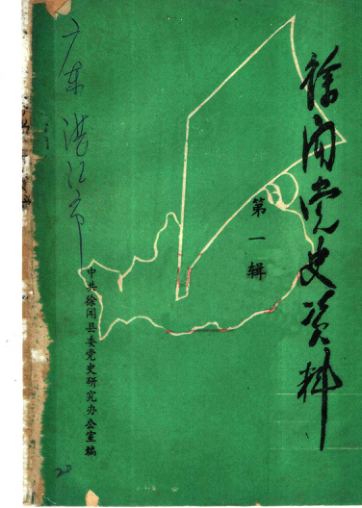 徐闻党史资料
第一辑
中共徐闻县委党史研究办公室编
广东湛江市
20